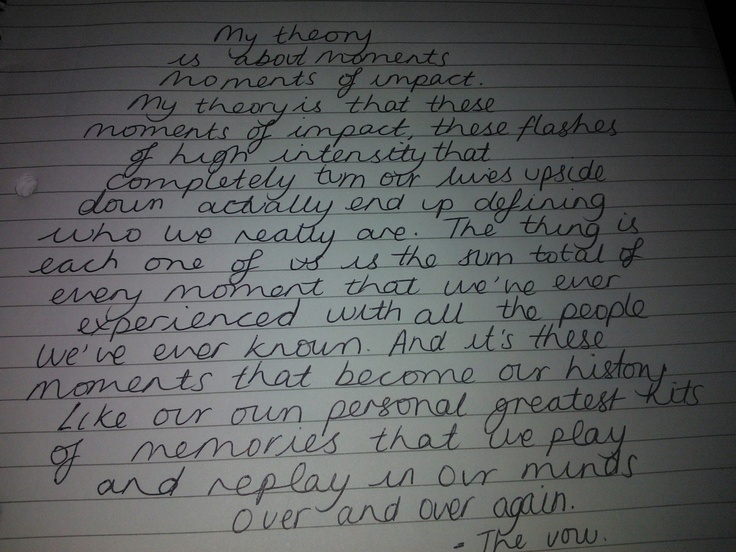 My theory
is about moments
moments of impact.
My theory is that these
moments of impact, these flashes
of high intensity that
completely turn our lives upside
down actually end up defining
who we really are. The thing is
each one of us is the sum total of
every moment that we've ever
experienced with all the people
we've ever known. And it's these
moments that become our history
Like our own personal greatest hits
of memories that we play
and replay in our minds
over and over again.
- The vow.